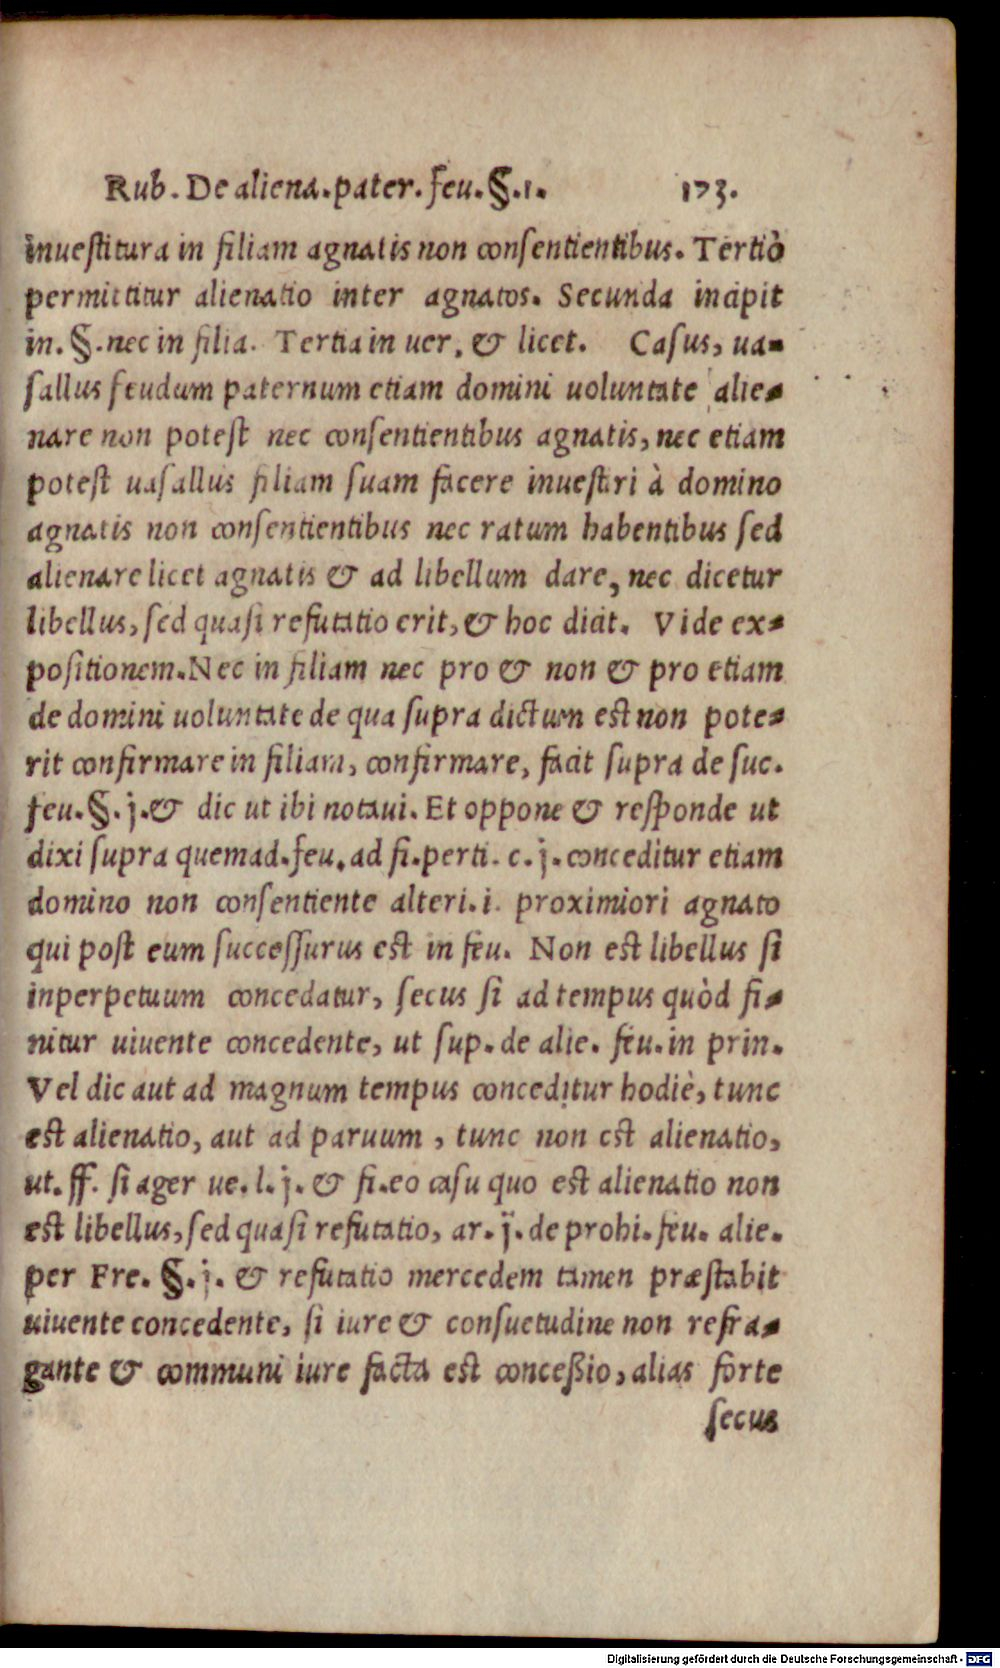 Rub. De aliena. pater. feu. §. 1. 173.
inuestitura in filiam agnatis non consentientibus. Tertiò
permittitur alienatio inter agnatos. Secunda incipit
in. §. nec in filia. Tertia in uer. & licet. Casus, ua-
sallus feudum paternum etiam domini uoluntate alie-
nare non potest nec consentientibus agnatis, nec etiam
potest uasallus filiam suam facere inuestiri à domino
agnatis non consentientibus nec ratum habentibus sed
alienare licet agnatis & ad libellum dare, nec dicetur
libellus, sed quasi refutatio erit, & hoc dicit. Vide ex-
positionem. Nec in filiam nec pro & non & pro etiam
de domini uoluntate de qua supra dictum est non pote-
rit confirmare in filiam, confirmare, facit supra de suc.
feu. §. j. & dic ut ibi notaui. Et oppone & responde ut
dixi supra quemad. feu. ad fi. perti. c. j. conceditur etiam
domino non consentiente alteri. i. proximiori agnato
qui post eum successurus est in feu. Non est libellus si
inperpetuum concedatur, secus si ad tempus quòd fi-
nitur uiuente concedente, ut sup. de alie. feu. in prin.
Vel dic aut ad magnum tempus conceditur hodiè, tunc
est alienatio, aut ad paruum, tunc non est alienatio,
ut. ff. si ager ue. l. j. & fi. eo casu quo est alienatio non
est libellus, sed quasi refutatio, ar. j. de prohi. feu. alie.
per Fre. §. j. & refutatio mercedem tamen præstabit
uiuente concedente, si iure & consuetudine non refra-
gante & communi iure facta est concessio, alias forte
secus
Digitalisierung gefördert durch die Deutsche Forschungsgemeinschaft - DFG